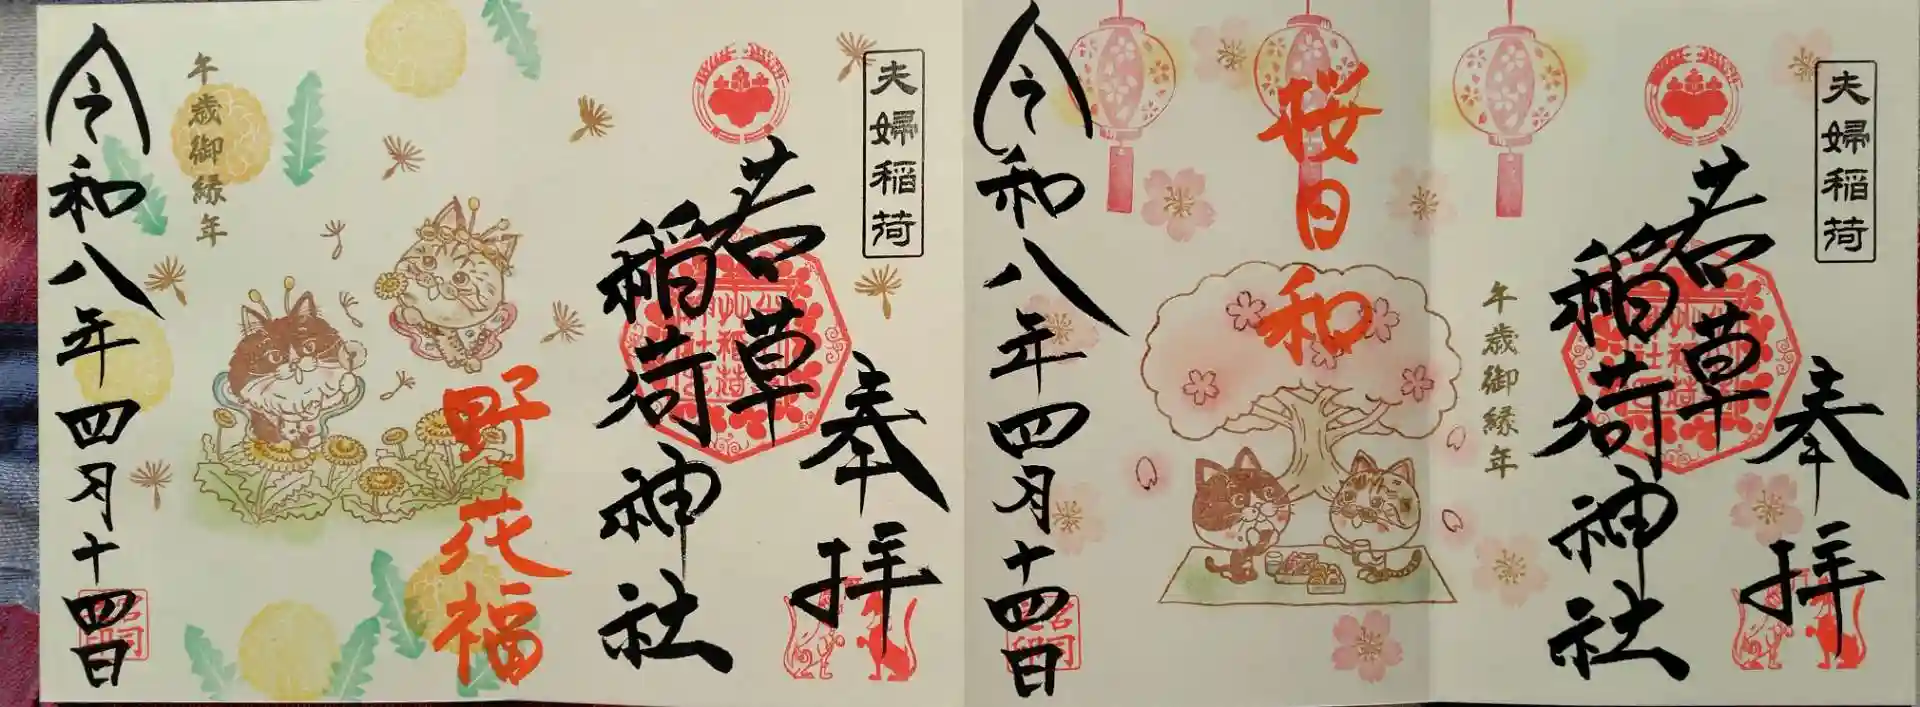 夫婦稲荷
奉拝
若草
稲荷神社
野花福
午歳御縁年
令和八年四月十四日
夫婦稲荷
奉拝
若草
稲荷神社
午歳御縁年
桜日和
令和八年四月十四日